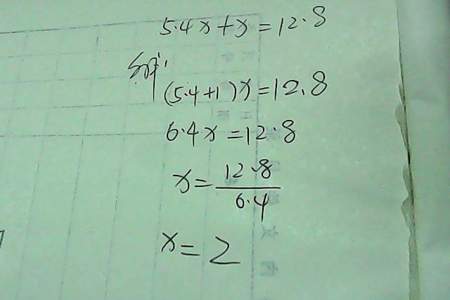 5.4x+x=12.8
解:
(5.4+1)x=12.8
6.4x=12.8
x=12.8/6.4
x=2